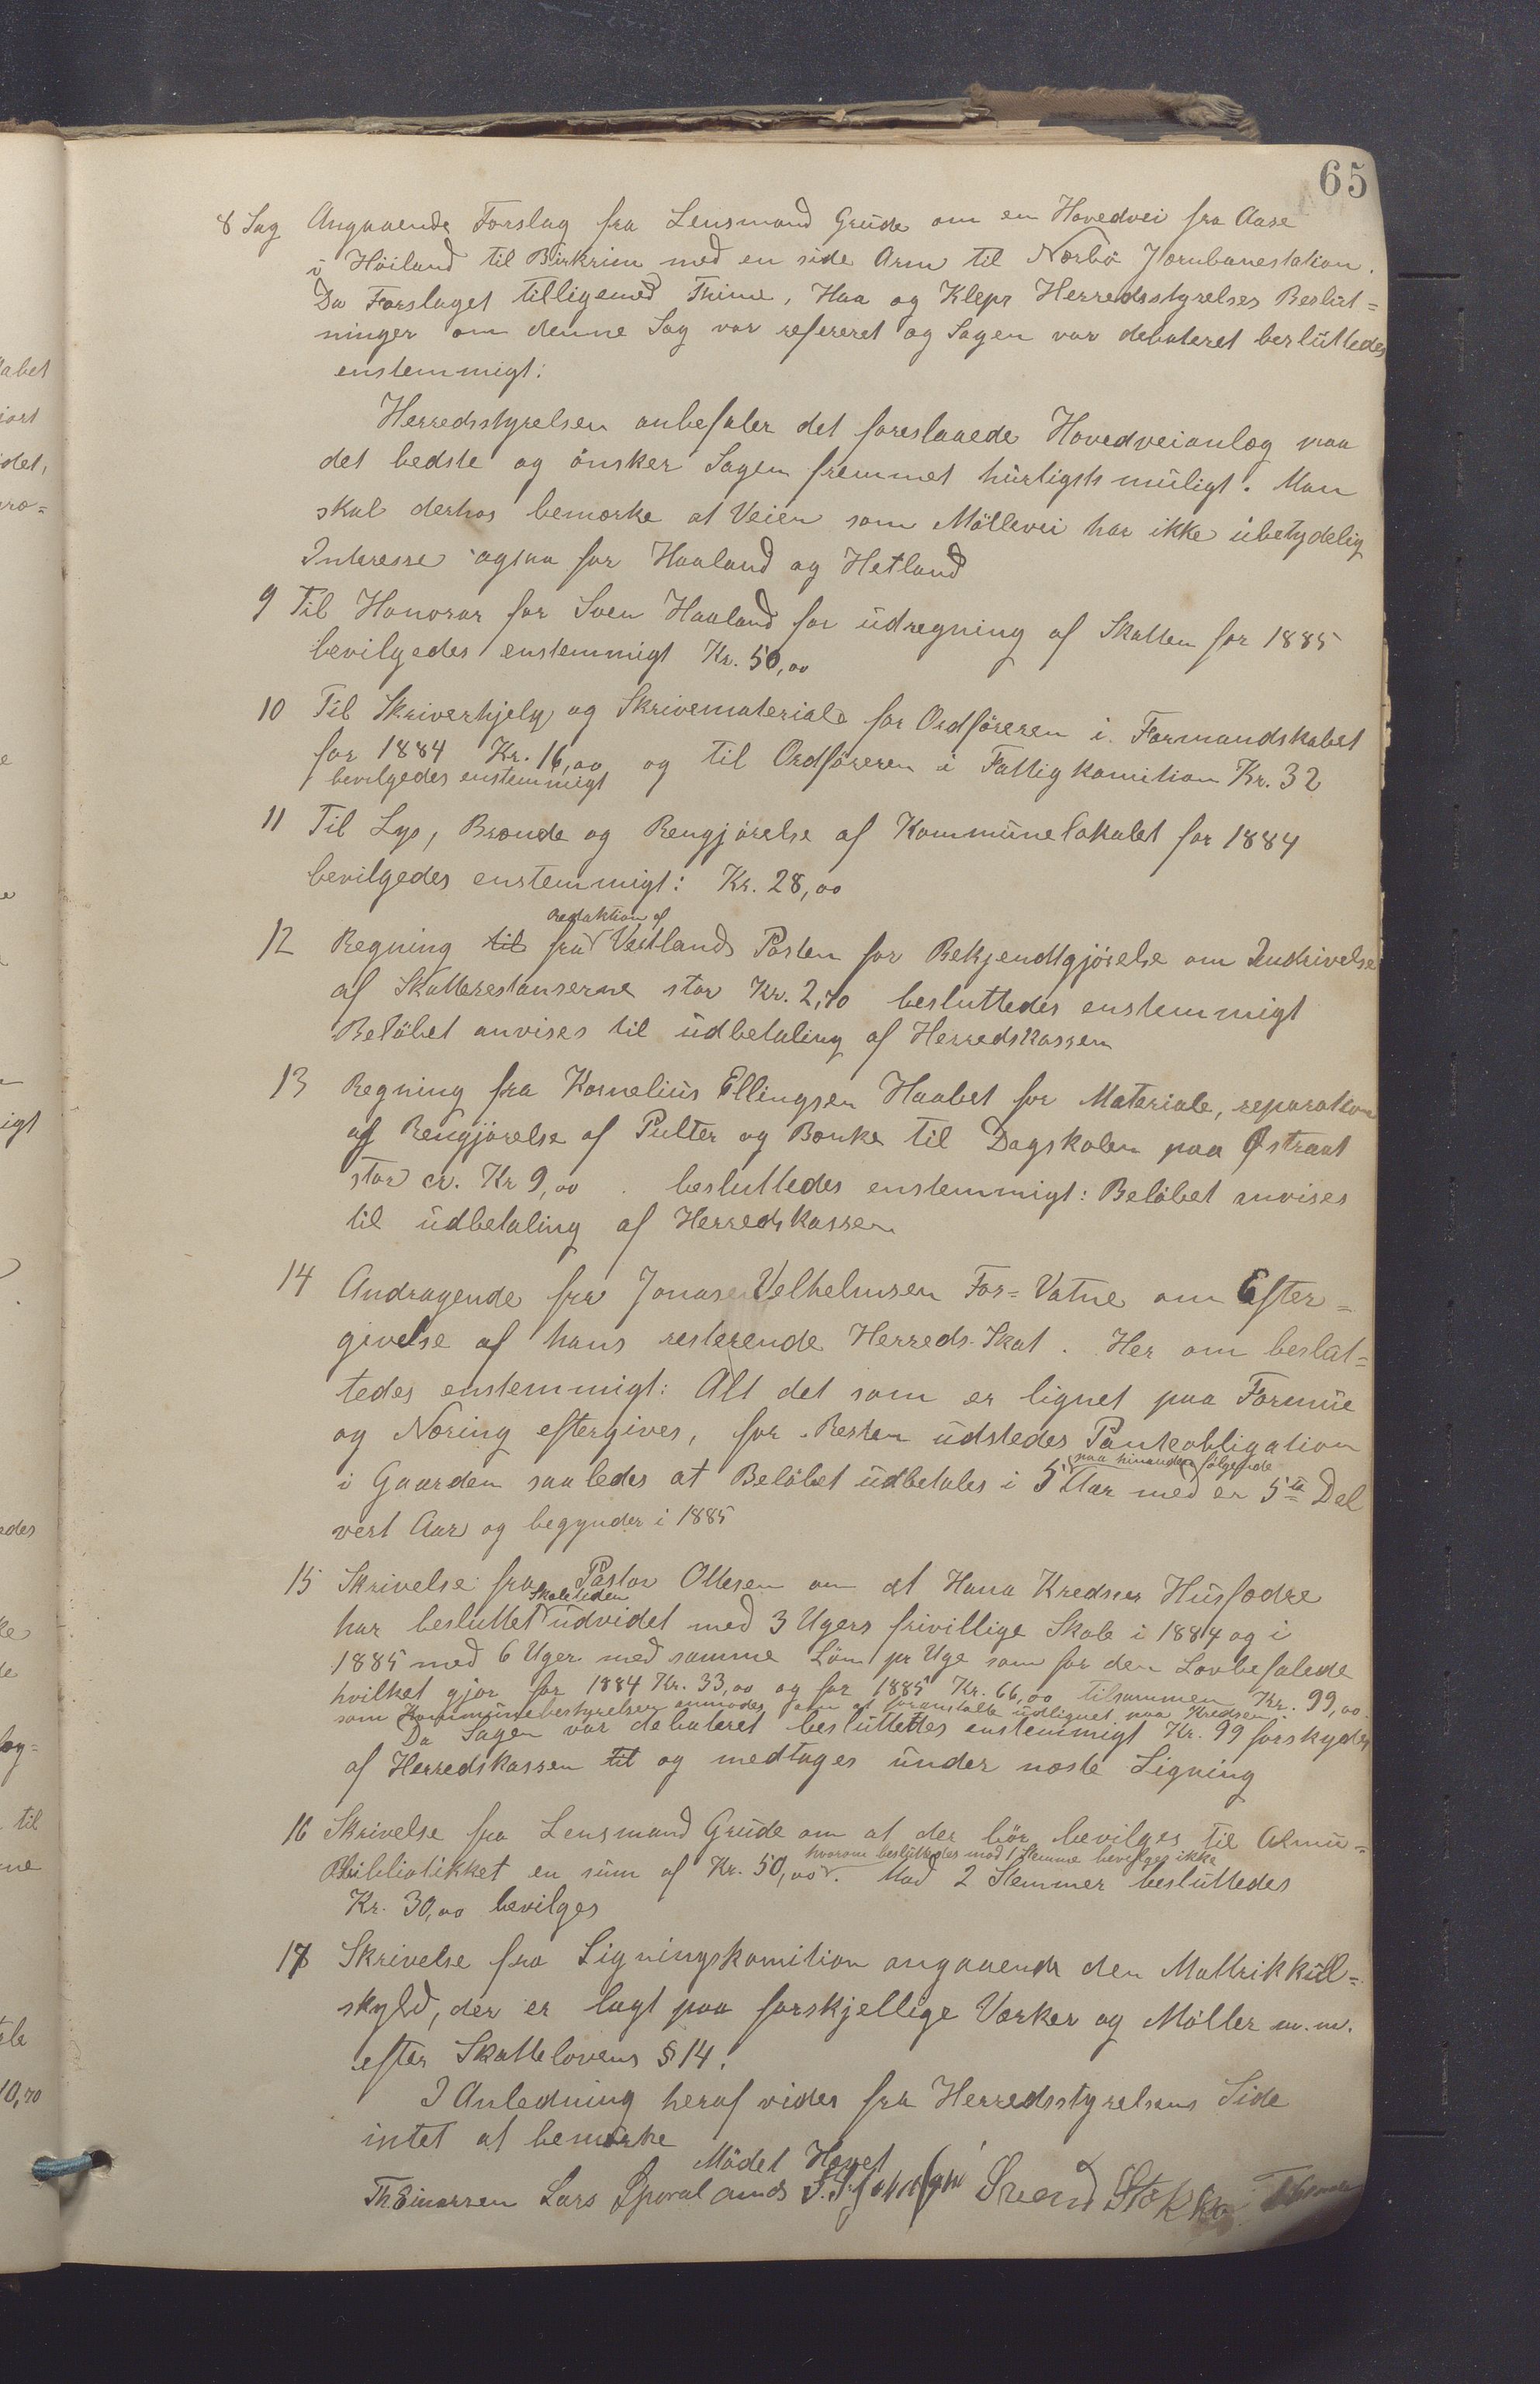 65
8 Sag Angaaende Forslag fra Lensmand Grude om en Hovedvei fra Aase
i Höiland til Birkrim med en side Arm til Nærbö Jernbanestation.
Da Forslaget tilligemed Thime, Haa og Klepr Herredsstyrelses Beslut=
ninger om denne Sag var refereret og Sagen var debateret besluttedes
enstemmigt:
Herredsstyrelsen anbefaler det foreslaaede Hovedveianlæg paa
det bedste og önsker Sagen fremmet hurtigst muligt. Man
skal derhos bemærke at Veien som Möllevei har ikke ubetydelig
Interesse ogsaa for Haaland og Hetland
9 Til Honorar for Sven Haaland for udregning af Skatten for 1885
bevilgedes enstemmigt Kr. 50,00
10 Til Skriverhjelp og Skrivemateriale for Ordföreren i Formandskabet
for 1884 Kr. 16,00 og til Ordföreren i Fattigkomition Kr. 32
bevilgedes enstemmigt
11 Til Lys, Brænde og Rengjörelse af Kommunelokalet for 1884
bevilgedes enstemmigt: Kr. 28,00
redaktion af
12 Regning til fra Vestlands Posten for Bekjendtgjörelse om Indrivelse
af Skatterestanserne stor Kr. 2,70 besluttedes enstemmigt
Belöbet anvises til udbetaling af Herredskassen
13 Regning fra Kornelius Ellingsen Haabet for Materiale, reparation
og Rengjörelse af Pulter og Bænke til Dagskolen paa Östraat
stor cr. Kr 9,00. besluttedes enstemmigt: Belöbet anvises
til udbetaling af Herredskassen
14 Andragende fra Jonas Velhelmsen Fos=Vatne om Efter=
givelse af hans resterende Herreds-Skat. Her om beslut=
tedes enstemmigt: Alt det som er lignet paa Formue
og Næring eftergives, for Resten udstedes Panteobligation
paa hinanden fölgende
i Gaarden saaledes at Belöbet udbetales i 5 Aar med en 5te Del
vert Aar og begynder i 1885
15 Skrivelse fra Pastor Ottesen om at Hana Kredses Husfædre
Skoletiden
har besluttet udvidet med 3 Ugers frivillige Skole i 1884 og i
1885 med 6 Uger med samme Lön pr Uge som for den Lovbefalede
hvilket gjör for 1884 Kr. 33,00 og for 1885 Kr. 66,00 tilsammen Kr. 99,00
som Kommunebestyrelsen anmodes om at foranstalte udlignet paa Kredsen.
Da Sagen var debateret besluttettes enstemmigt Kr. 99 forskydes
af Herredskassen til og medtages under næste Ligning
16 Skrivelse fra Lensmand Grude om at der bör bevilges til Almu=
hvorom besluttedes mod 1 Stemme bevilges ikke
Bibliotikket en sum af Kr. 50,00. Mod 2 Stemmer besluttedes
Kr. 30,00 bevilges
17 Skrivelse fra Ligningskomition angaaende den Mattrikkul=
skyld, der er lagt paa forskjellige Værker og Möller m.m.
efter Skattelovens § 14.
I Anledning heraf vides fra Herredsstyrelsens Side
intet at bemærke
Mödet Hævet
Th Einarsen Lars Svend Stokke